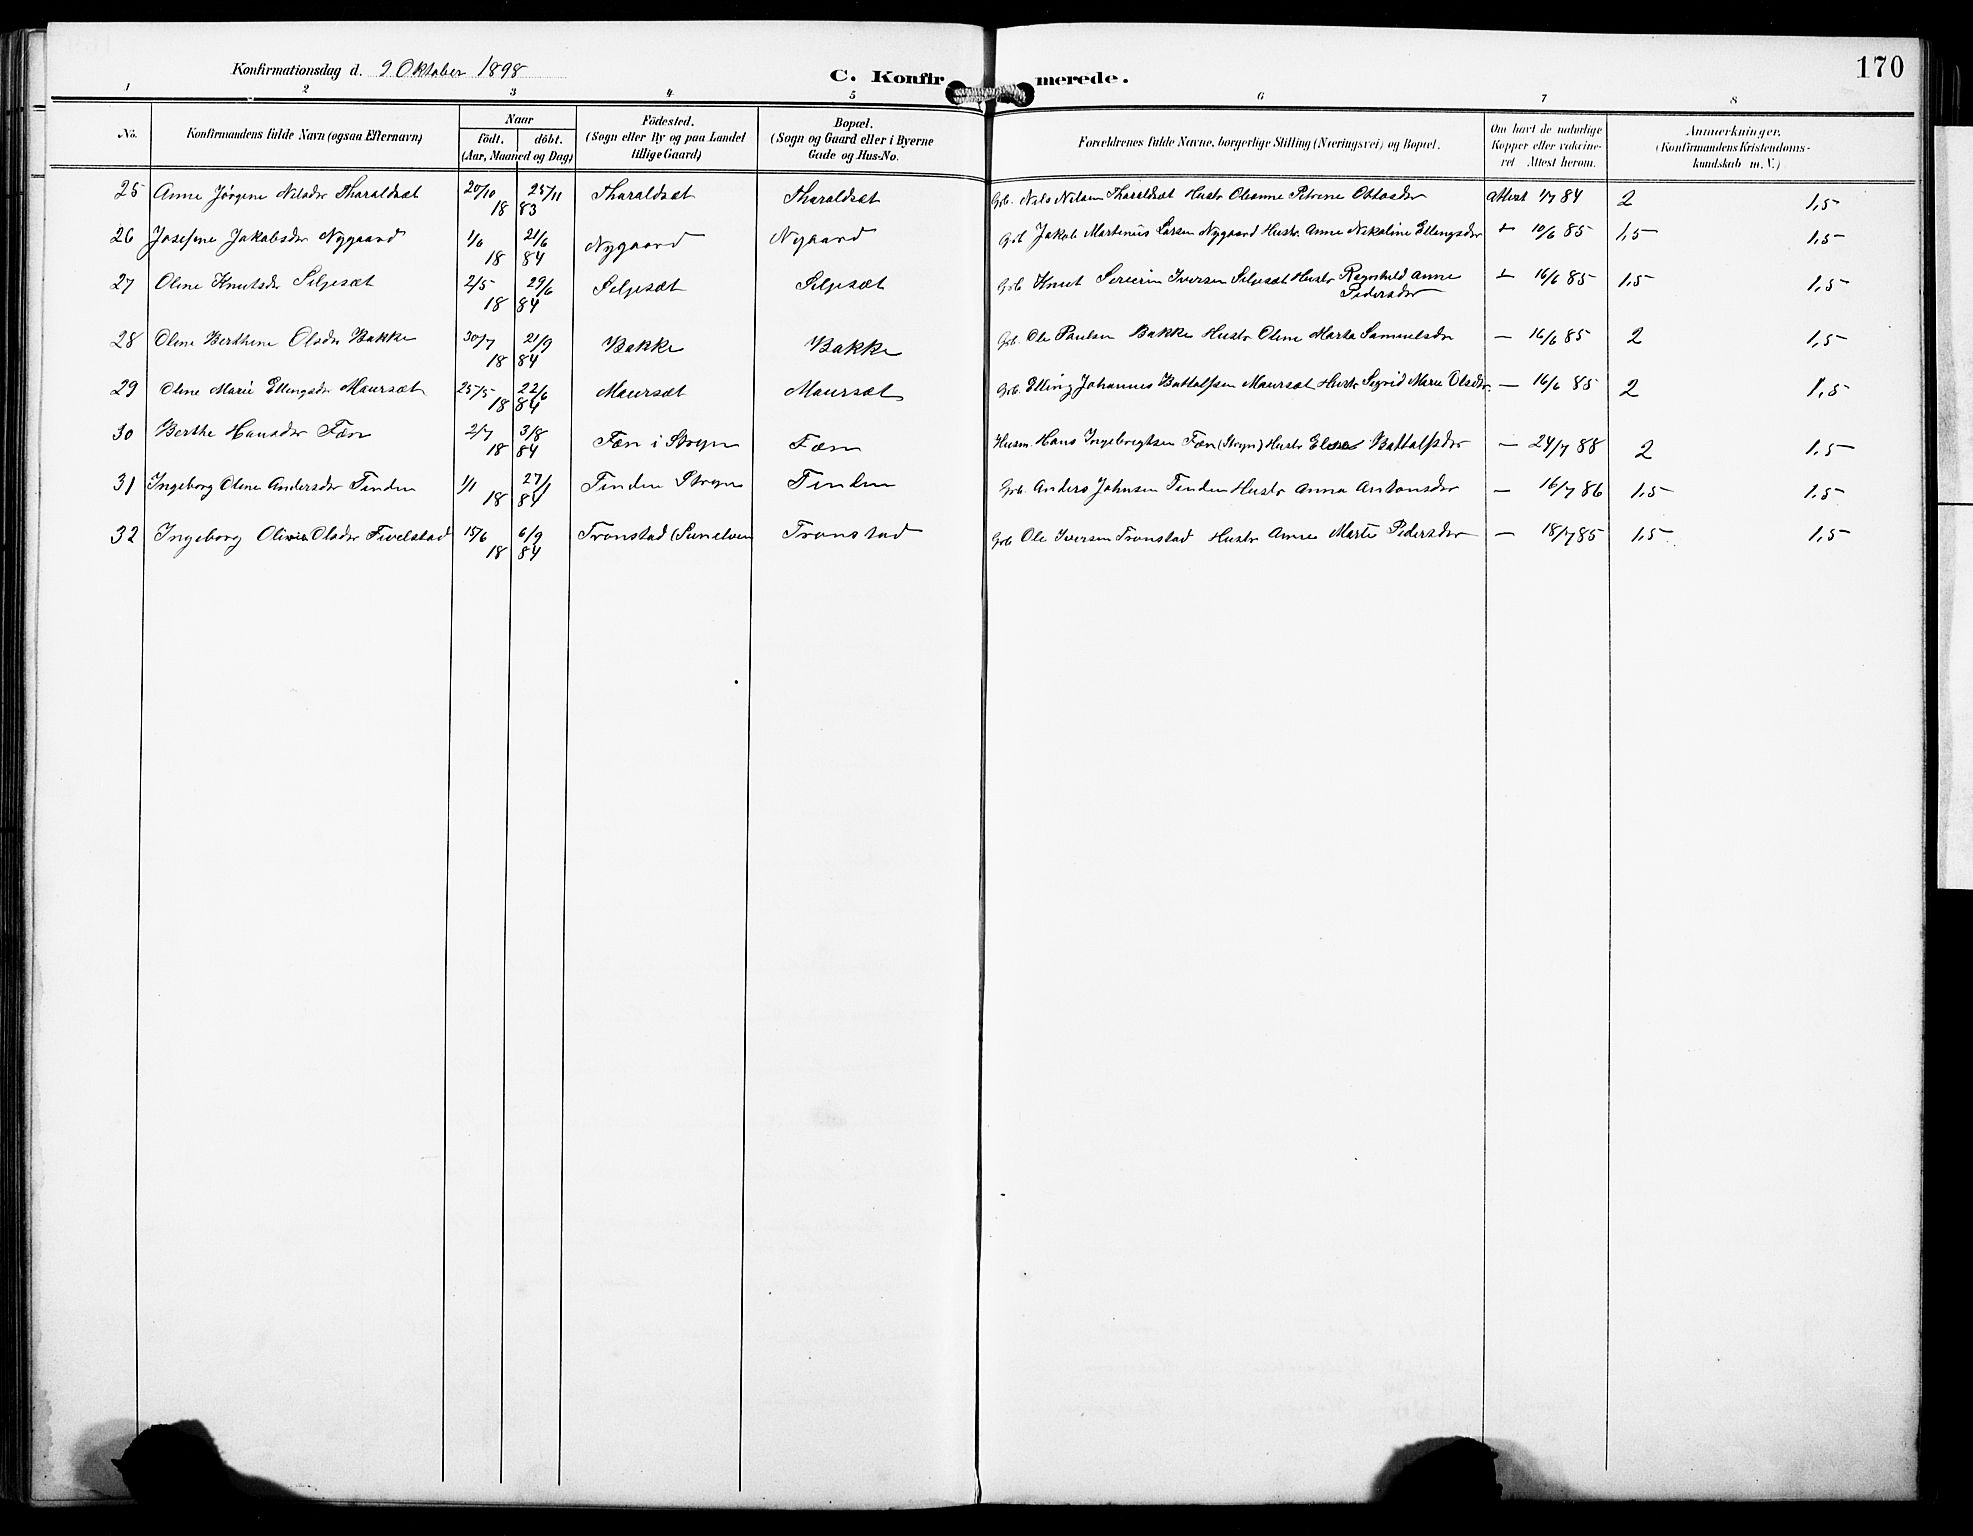 Konfirmationsdag d. 9 Oktober 1898
C. Konfirmerede.
170
1 2 3 4 5 6 7 8
No. Konfirmandens fulde Navn (ogsaa Efternavn) Naar födt. döbt. (Aar, Maaned og Dag) Födested. (Sogn eller By og paa Landet tillige Gaard) Bopæl. (Sogn og Gaard eller i Byerne Gade og Hus-No. Forældrenes fulde Navne, borgerlige Stilling (Næringsvei) og Bopæl. Om havt de naturlige Kopper eller vakcineret Attest herom. Anmerkninger. (Konfirmandens Kristendomskundskab m. V.)
25 Anne Jørgine Nilsdr Tharaldsæt 20/10 25/11 1883 Tharaldsæt Tharaldsæt Grb. Nils Nilsen Tharaldsæt Hustr Olianne Petrine Ottosdr Attest 1/7 84 2 1,5
26 Josefine Jakobsdr Nygaard 1/6 21/6 1884 Nygaard Nygaard Grb Jakob Martinus Larsen Nygaard Hustr. Anne Nikoline Ellingsdr 10/6 85 1,5 1,5
27 Oline Knutsdr Seljesæt 2/5 29/6 1884 Seljesæt Seljesæt Grb Knut Severin Iversen Seljesæt Hustr Ragnhild Anne Pedersdr 16/6 85 1,5 1,5
28 Oline Berthine Olsdr Bakke 30/7 21/9 1884 Bakke Bakke Grb. Ole Paulsen Bakke Hustr Oline Marta Samuelsdr — 16/6 85 2 1,5
29 Oline Marie Ellingsdr Maursæt 25/5 22/6 1884 Maursæt Maursæt Grb. Elling Johannes Battolfsen Maursæt Hustr Sigrid Marie Olsdr — 16/6 85 2 1,5
30 Berthe Hansdr Fæn 2/7 3/8 1884 Fæn i Stryn Fæn Husm. Hans Ingebrigtsen Fæn (Stryn) Hustr Battolfsdr — 24/7 88 2 1,5
31 Ingeborg Oline Andersdr Tinden 1/1 27/1 1884 Tinden Stryn Tinden Grb. Anders Johnsen Tinden Hustr Anna Antonsdr — 16/7 86 1,5 1,5
32 Ingeborg Olsdr Fivelstad 15/6 6/9 1884 Tronstad (Sunelven Tronstad Grb Ole Iversen Tronstad Hustr Anne Marte Pedersdr — 18/7 85 1,5 1,5